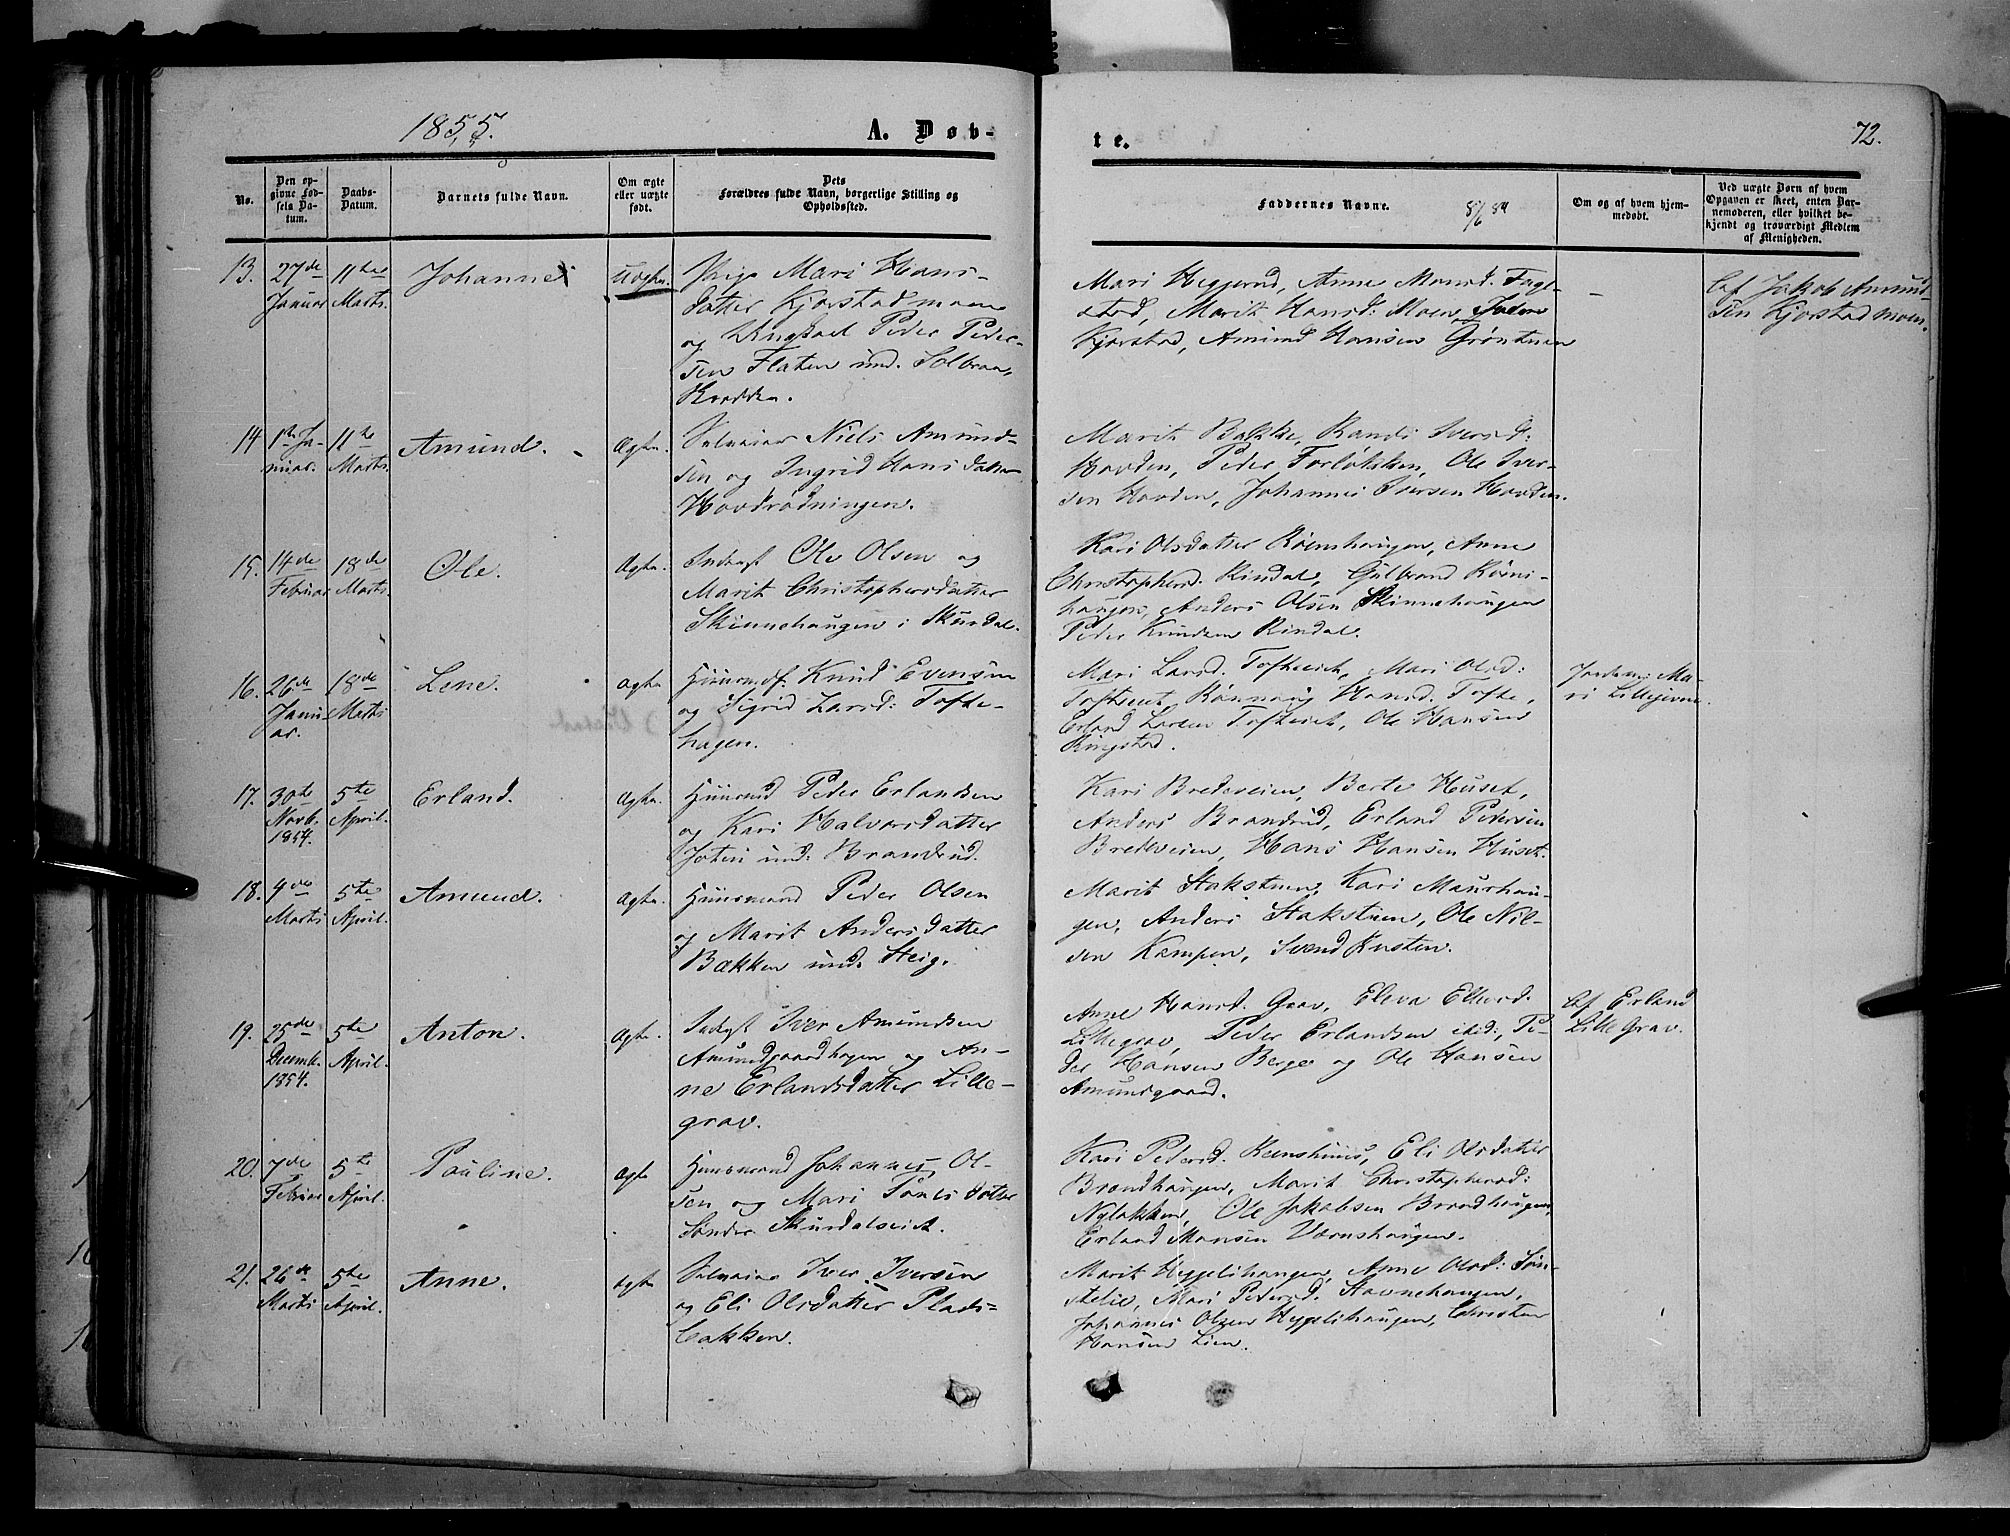 1855.
A. Døb-
te.
72.
No.
Den op-
givne Fød-
sels Da-
tum.
Daabs-
Datum.
Barnets fulde Navn.
Om ægte
eller uægte
født.
Dets
Forældres fulde Navn, borgerlige Stilling og
Opholdssted.
Faddernes Navne.
8/6 84
Om og af hvem hjem-
medøbt.
Ved uægte Børn af hvem
Opgaven er skeet, enten Bar-
nemoderen, eller hvilket be-
kjendt og troværdigt Medlem
af Menigheden.
13.
27de
Januar
11te
Marts.
Johanne
Uægte.
Pige Mari Hans-
datter Kjorstadmoen
og Ungkarl Peder Peder-
sen Flaten und. Solbraa,
Kvodden.
Mari Heggerud, Anne Monsd. Fugl-
stad, Marit Hansd: Moen,
Kjorstad, Amund Hansen Grøntuen
Af Jakob Amund-
sen Kjorstadmoen.
14
1te Ja-
nuar.
11te
Marts.
Amund.
Ægte.
Selveier Niels Amund-
sen og Ingrid Hansdatter
Hovdrødningen.
Marit Bakke, Randi Iversd:
Hovden, Peder Forløkken, Ole Iver-
sen Hovden, Johannes Iversen Hovden.
15.
14de
Februar
18de
Marts.
Ole.
Ægte.
Inderst Ole Olsen og
Marit Christophersdatter
Skinnehaugen i Skurdal.
Kari Olsdatter Rømshaugen, Anne
Christophersd. Rindal, Gulbrand Røms-
haugen, Anders Olsen Skinnehaugen
Peder Knudsen Rindal.
16.
26de
Janu-
ar.
18de
Marts
Lene.
Ægte
Huusmd. Knud Evensen
og Sigrid Larsd: Tofte-
hagen.
Mari Larsd. Tofteeiet, Mari Olsd:
Tofteeiet, Rønnaug Hansd: Tofte,
Erland Larsen Tofteeiet, Ole Hansen
Ringstad.
Jordem: Ma-
ri Lillejevne.
17.
30te
Novb.
1854.
5te
April.
Erland.
Ægte.
Huusmd Peder Erlandsen
og Kari Halvorsdatter
Joten und: Brandrud.
Kari Bredeveien, Berte Huset,
Anders Brandrud, Erland Pedersen
Bredeveien, Hans Hansen Huset.
18.
9de
Marts
5te
April.
Amund.
Ægte.
Huusmand Peder Olsen
og Marit Andersdatter
Bækken und: Steig.
Marit Stakstuen, Kari Maurhau-
gen, Anders Stakstuen, Ole Nil-
sen Kampen, Svend Kusten.
19.
25de
Decemb.
1854.
5te
April.
Anton.
Ægte.
Inderst Iver Amundsen
Amundgaardhagen og An-
ne Erlandsdatter Lille-
grav.
Anne Hansd. Grav, Eleva Ellevsd:
Lillegrav, Peder Erlandsen ibid:, Pe-
der Hansen Berge og Ole Hansen
Amundgaard.
Af Erland
Lillegrav.
20.
7de
Februar
5te
April.
Pauline.
Ægte
Huusmand Johannes Ol-
sen og Mari Tønnesdatter
Søndre Skurdalseiet.
Kari Pedersd. Eli Olsdatter
Brændhaugen, Marit Christophersd:
Nyløkken, Ole Jakobsen Brændhaugen,
Erland Monsen Vornshaugen.
21.
26de
Marts
5te
April.
Anne.
Ægte
Selveier Iver Iversen
og Eli Olsdatter Plads-
bakken.
Marit Heggelihaugen, Anne Olsd: Søn-
stelie, Mari Pedersd. Stavnehaugen,
Johannes Olsen Heggelihaugen, Christen
Hansen Lien.